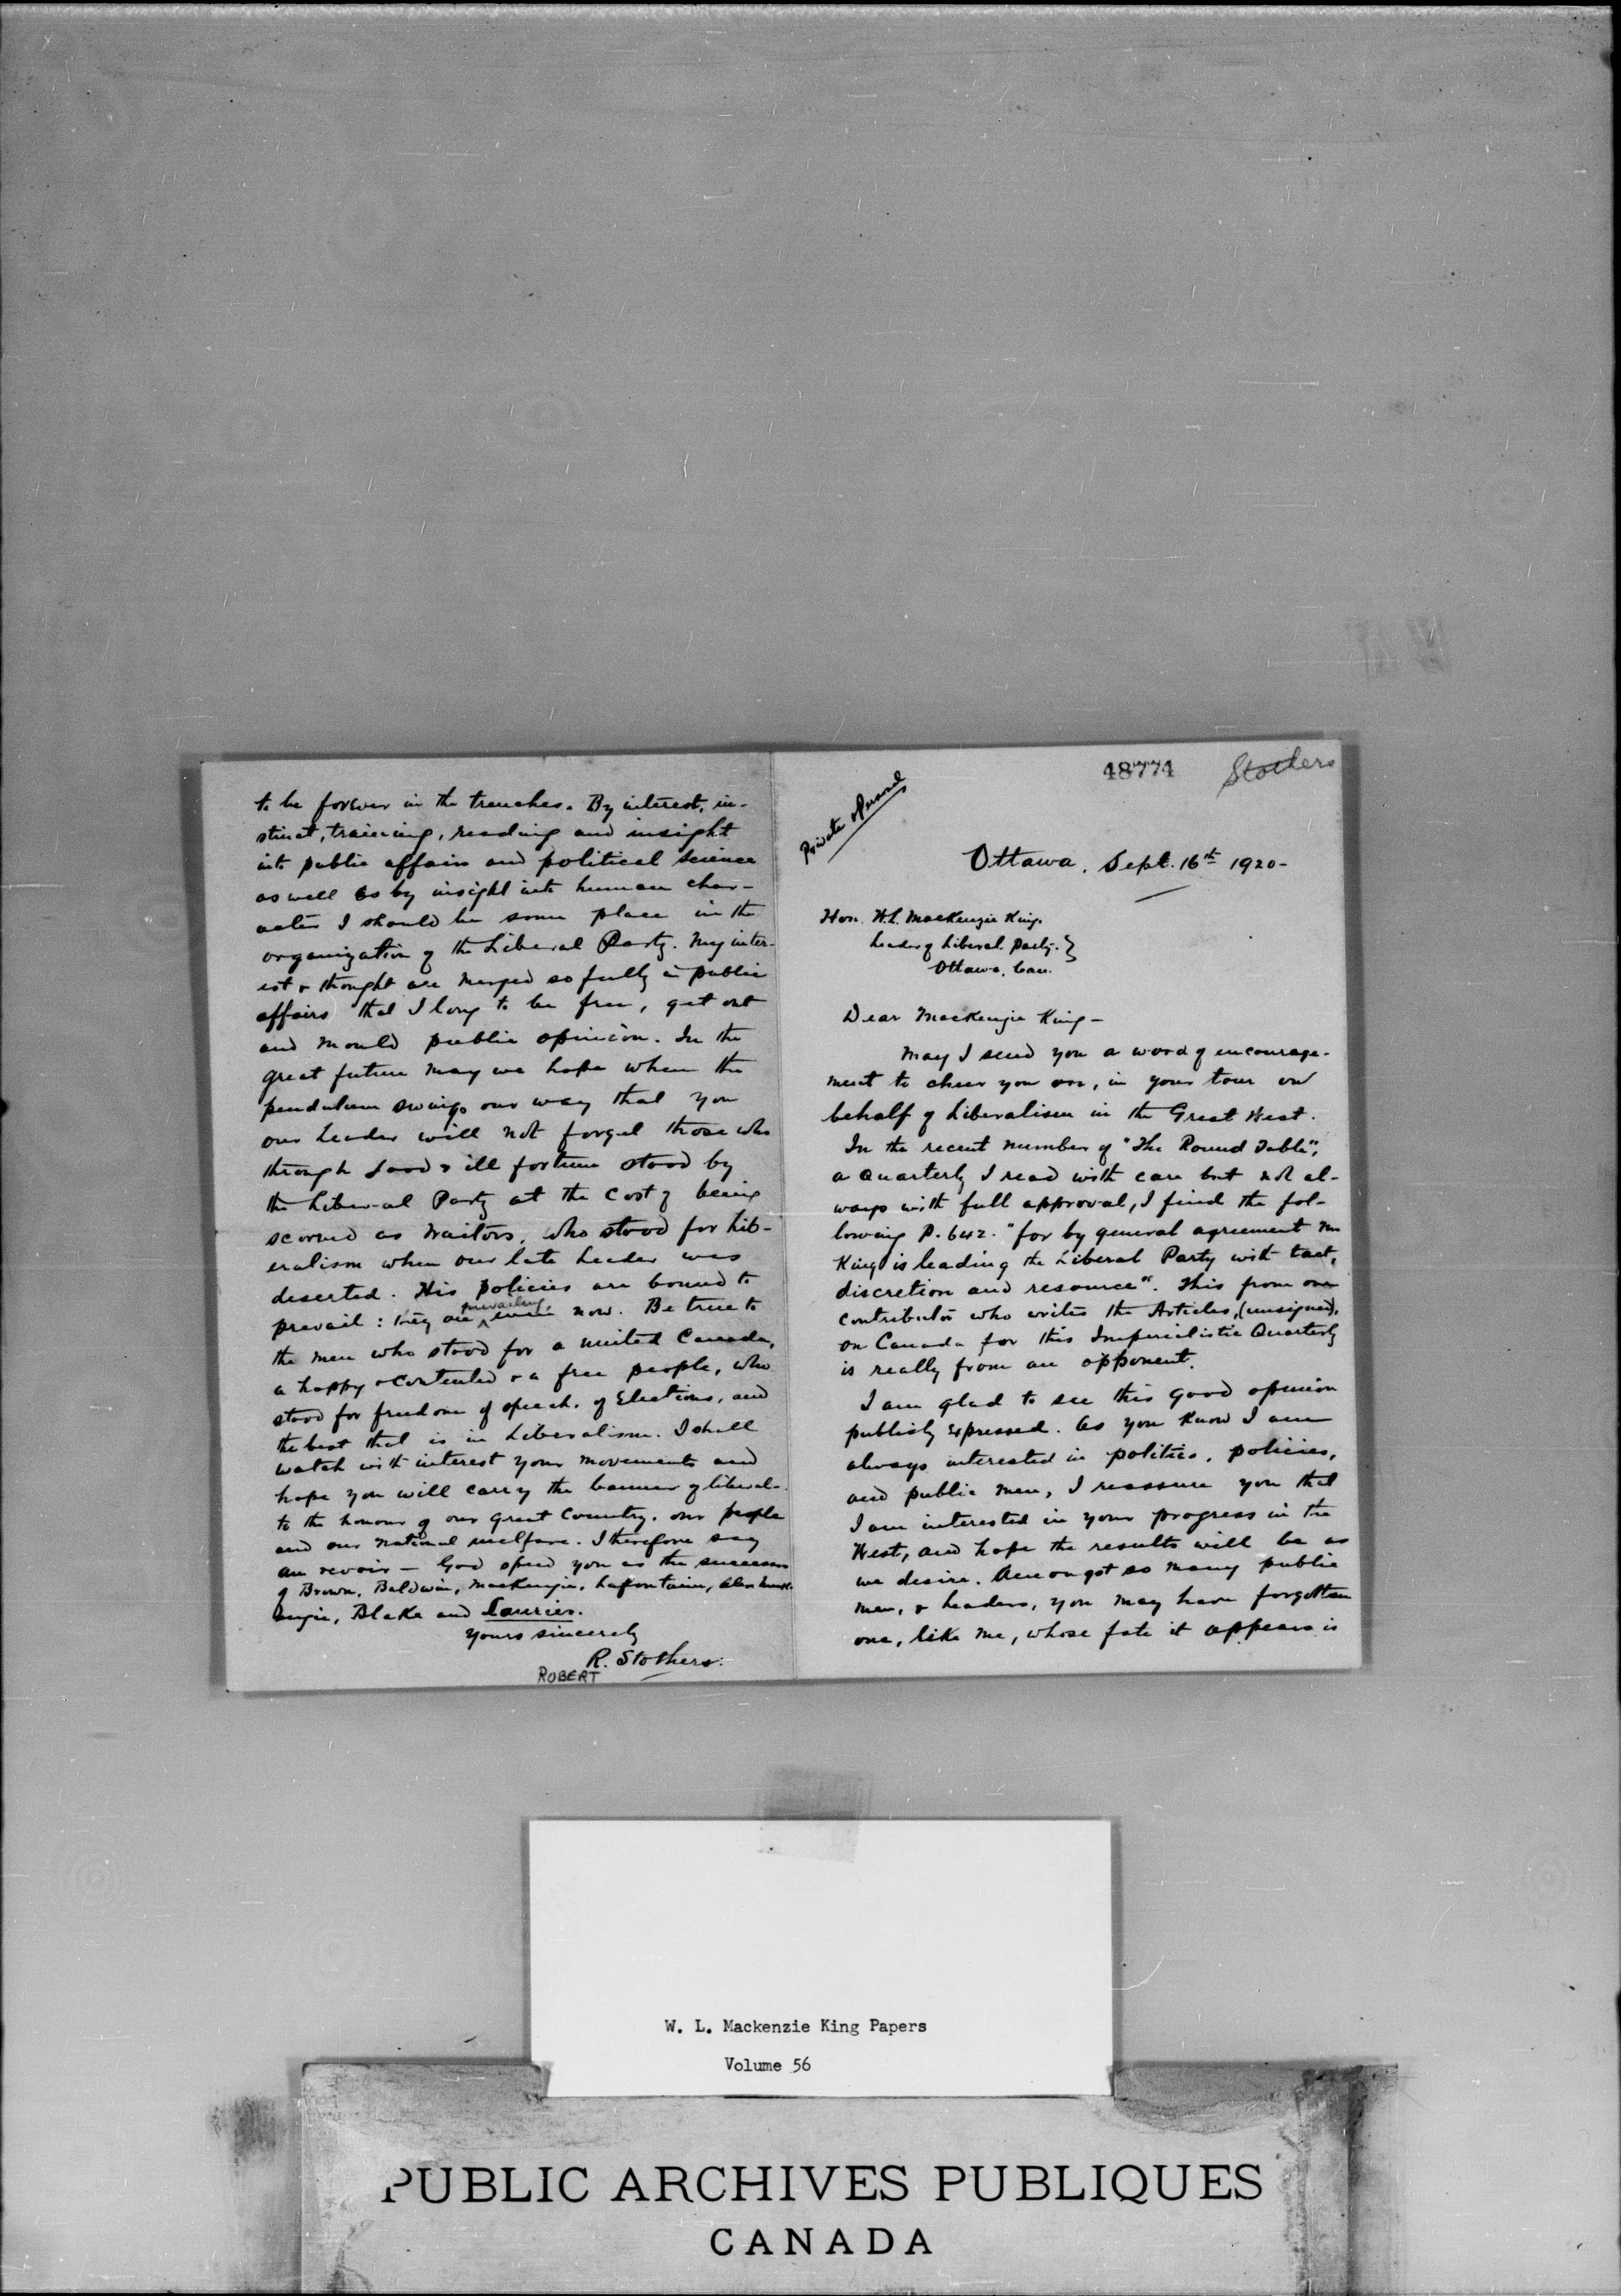 48774
Stothers
Private & Personal
Ottawa, Sept. 16th 1920-
Hon. W.L. Mackenzie King.
Leader of Liberal Party.}
Ottawa, Can.
Dear Mackenzie King-
May I send you a word of encourage-
ment to cheer you on, in your tour on
behalf of Liberalism in the Great West.
In the recent number of "The Round Table",
a Quarterly I read with care but not al-
ways with full approval, I find the fol-
lowing P. 642. "for by general agreement Mr
King is leading the Liberal Party with tact,
discretion and resource". This from our
contributor who writes the Articles, (unsigned),
on Canada for this Imperialistic Quarterly
is really from an opponent.
I am glad to see this good opinion
publicly expressed. As you know I am
always interested in politics, policies,
and public men, I reassure you that
I am interested in your progress in the
West, and hope the results will be as
we desire. Amongst so many public
men, & leaders, you may have forgotten
one, like me, whose fate it appears is
to be forever in the trenches. By interest, in-
stinct, training, reading and insight
into public affairs and political science
as well as by insight into human char-
acter I should be some place in the
organization of the Liberal Party. My inter-
est & thought are merged so fully in public
affairs that I long to be free, get out
and mould public opinion. In the
great future may we hope when the
pendulum swings our way that you
our Leader will not forget those who
through good & ill fortune stood by
the Liberal Party at the cost of being
scorned as traitors, who stood for Lib-
eralism when our late Leader was
deserted. His policies are bound to
prevail: they are prevailing, even now. Be true to
the men who stood for a united Canada,
a happy & contented & a free people, who
stood for freedom of speech, of Elections, and
the best that is in Liberalism. I shall
watch with interest your movements and
hope you will carry the banner of liberal-
to the honour of our great Country, our people
and our national welfare. I therefore say
au revoir - God speed you as the successor
of Brown, Baldwin, Mackenzie, Lafontaine, Alex Mack-
enzie, Blake and Laurier.
Yours sincerely
R. Stothers.
ROBERT
W. L. Mackenzie King Papers
Volume 56
PUBLIC ARCHIVES PUBLIQUES
CANADA